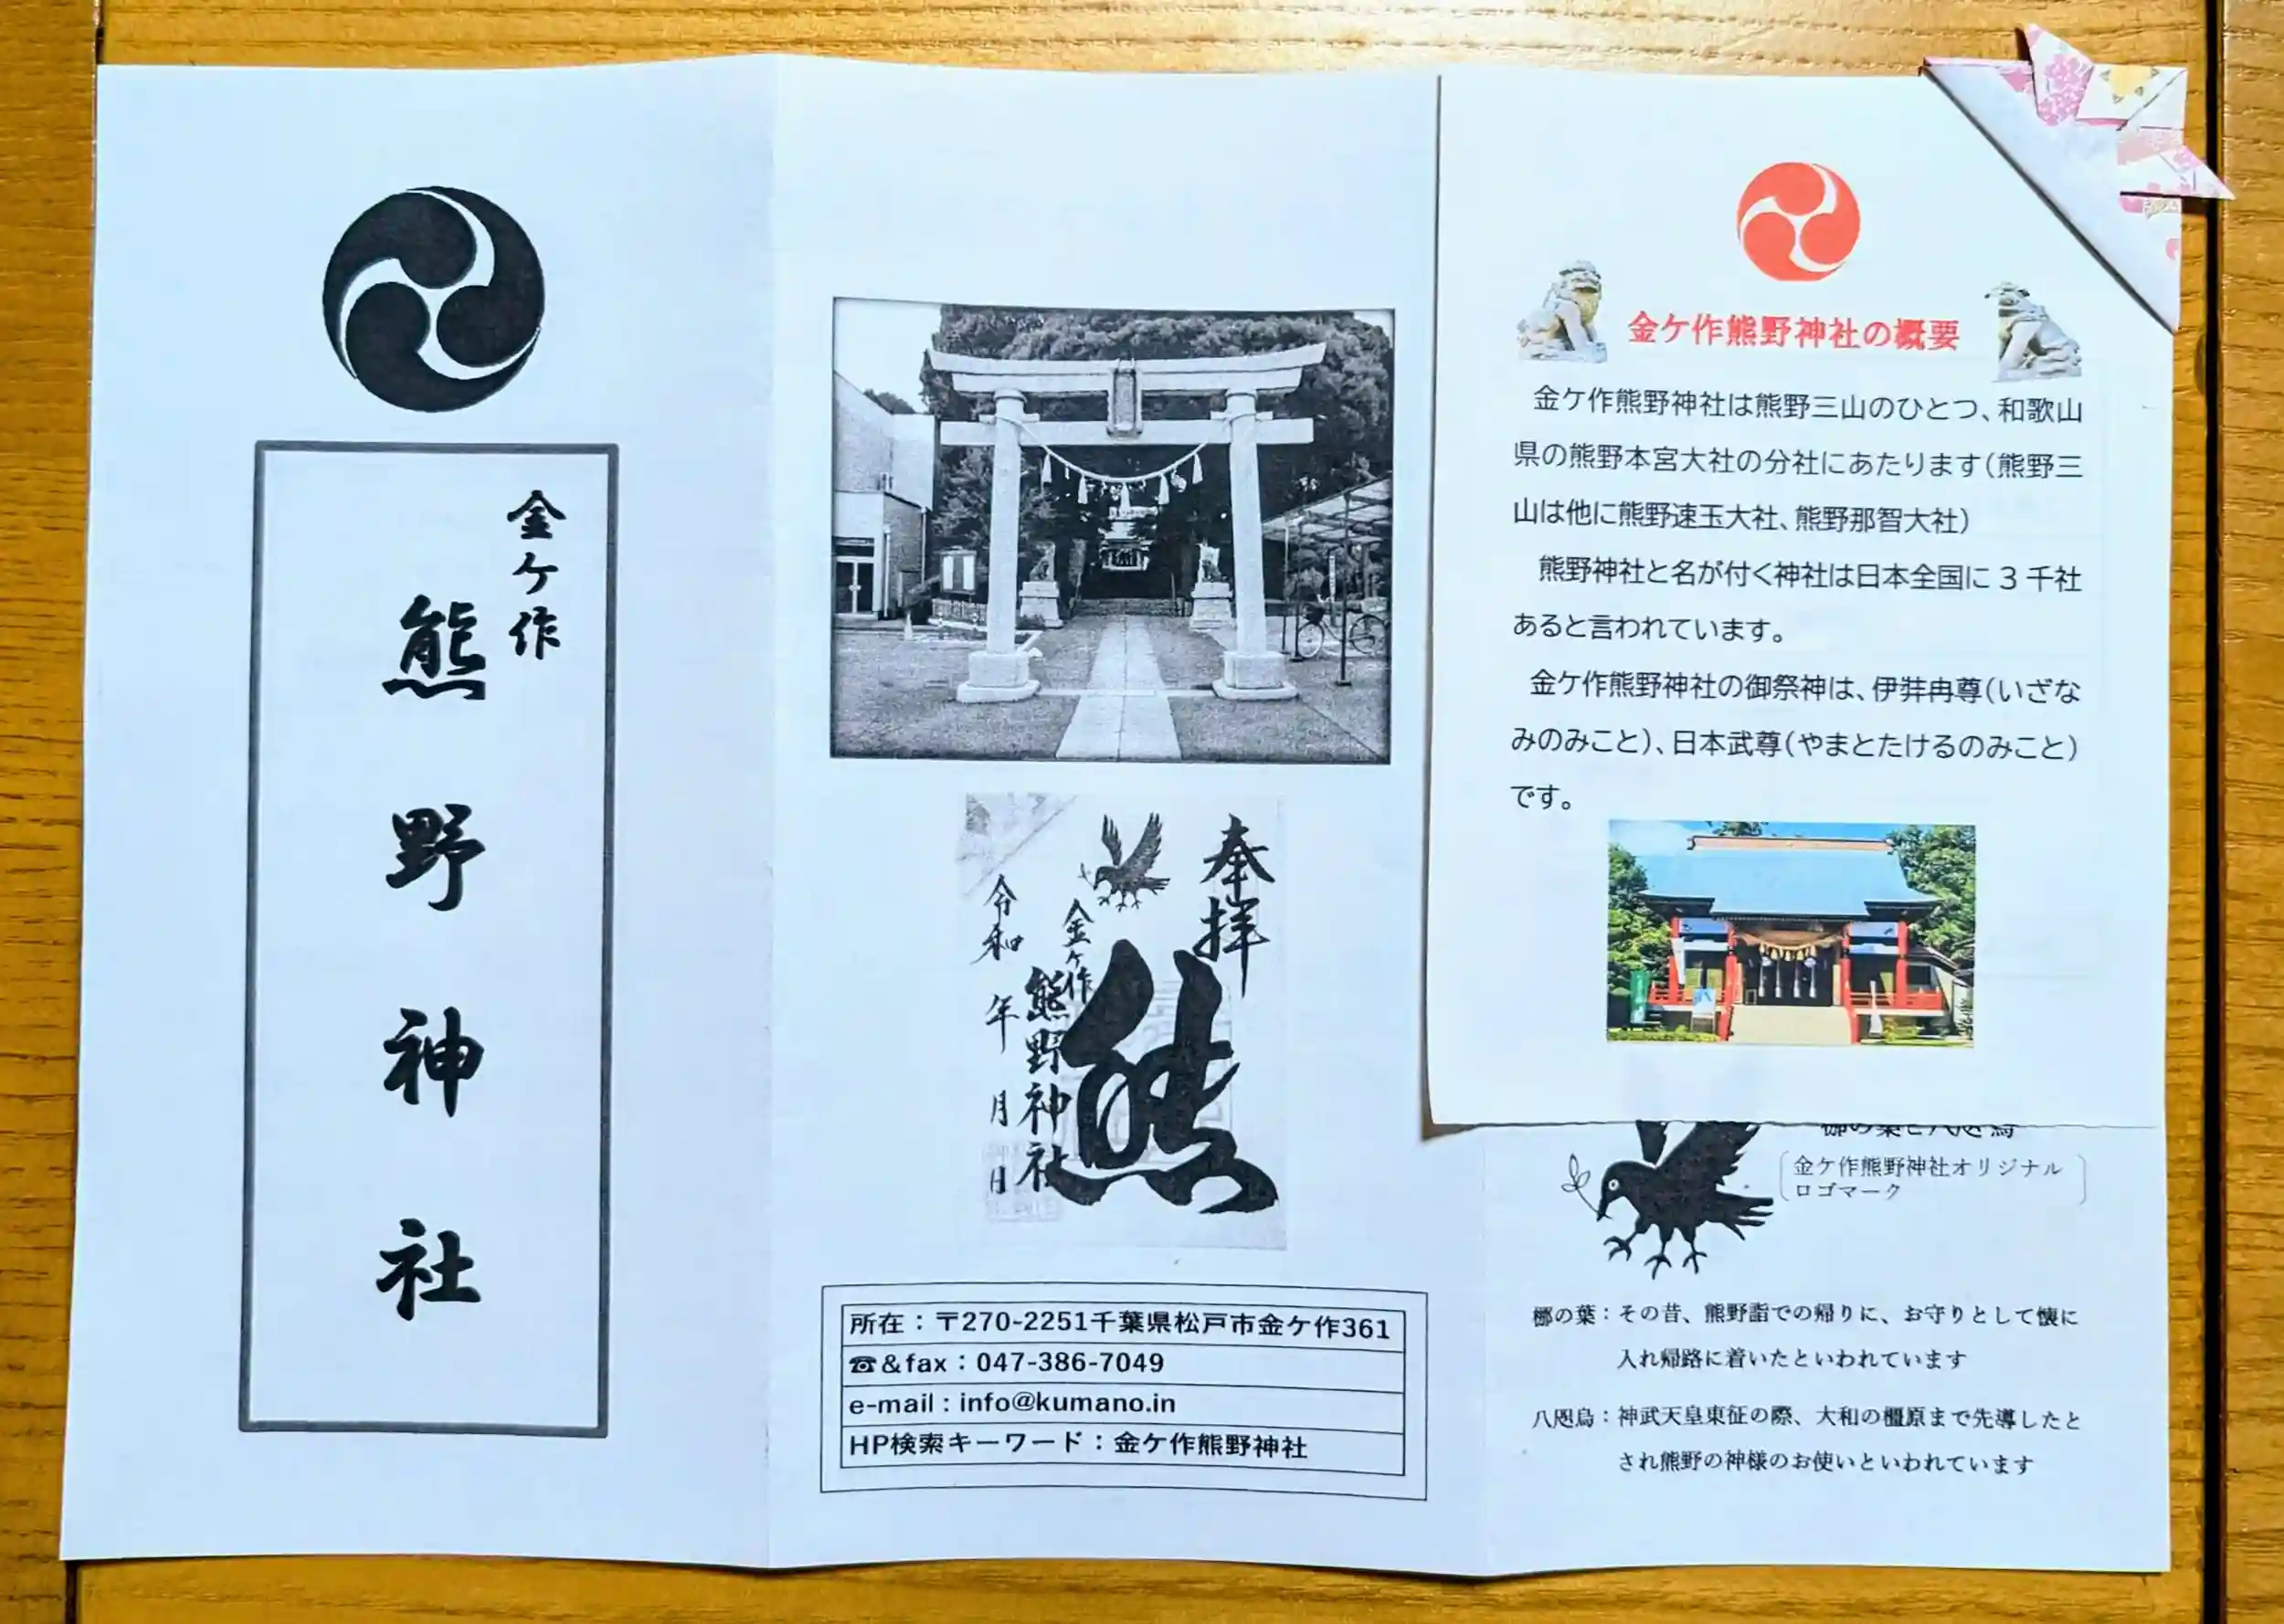 金ケ作
熊野神社
奉拝
熊
金ケ作
熊野神社
令和　年　月　日
所在：〒270-2251千葉県松戸市金ケ作361
☎&fax：047-386-7049
e-mail：info@kumano.in
HP検索キーワード：金ケ作熊野神社
金ケ作熊野神社の概要
金ケ作熊野神社は熊野三山のひとつ、和歌山
県の熊野本宮大社の分社にあたります(熊野三
山は他に熊野速玉大社、熊野那智大社)
熊野神社と名が付く神社は日本全国に3千社
あると言われています。
金ケ作熊野神社の御祭神は、伊弉冉尊(いざな
みのみこと)、日本武尊(やまとたけるのみこと)
です。
金ケ作熊野神社オリジナル
ロゴマーク
梛の葉：その昔、熊野詣での帰りに、お守りとして懐に
入れ帰路に着いたといわれています
八咫烏：神武天皇東征の際、大和の橿原まで先導したと
され熊野の神様のお使いといわれています